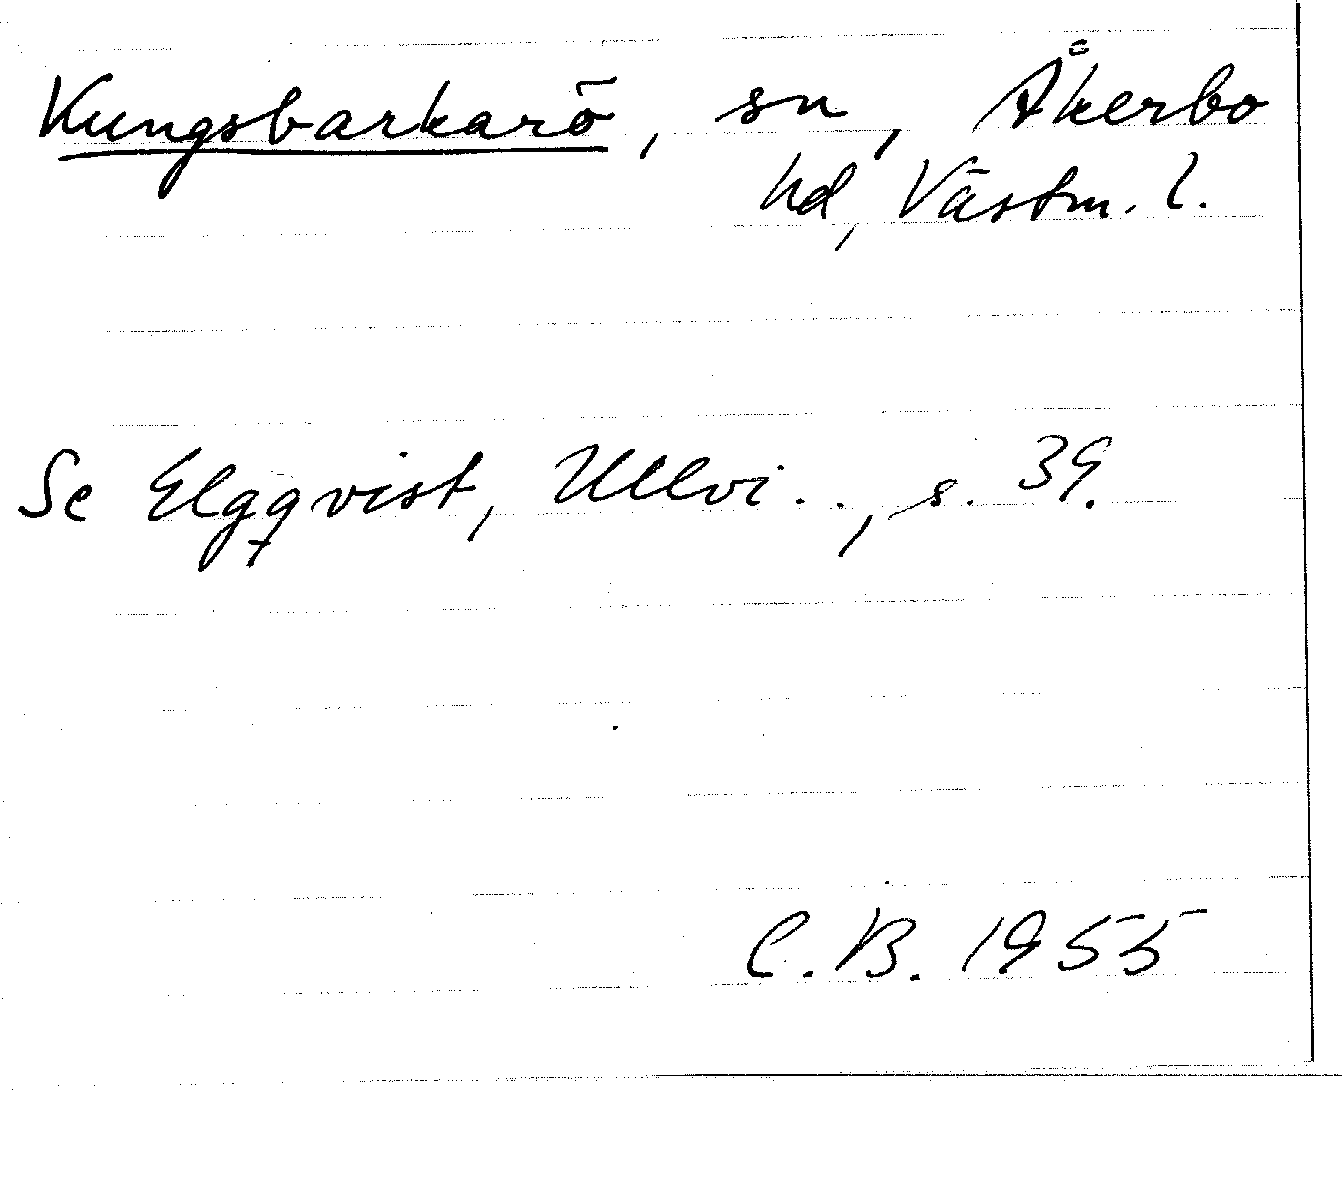 Kungsbarkarö, sn, Åkerbo
hd, Västm. l.
Se Elgqvist, Ullvi . ., s. 39.
C.B. 1955